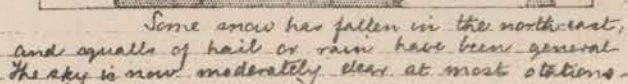 Some snow has fallen in the north-east,
and squalls of hail or rain have been general
The sky is now moderately clear at most stations